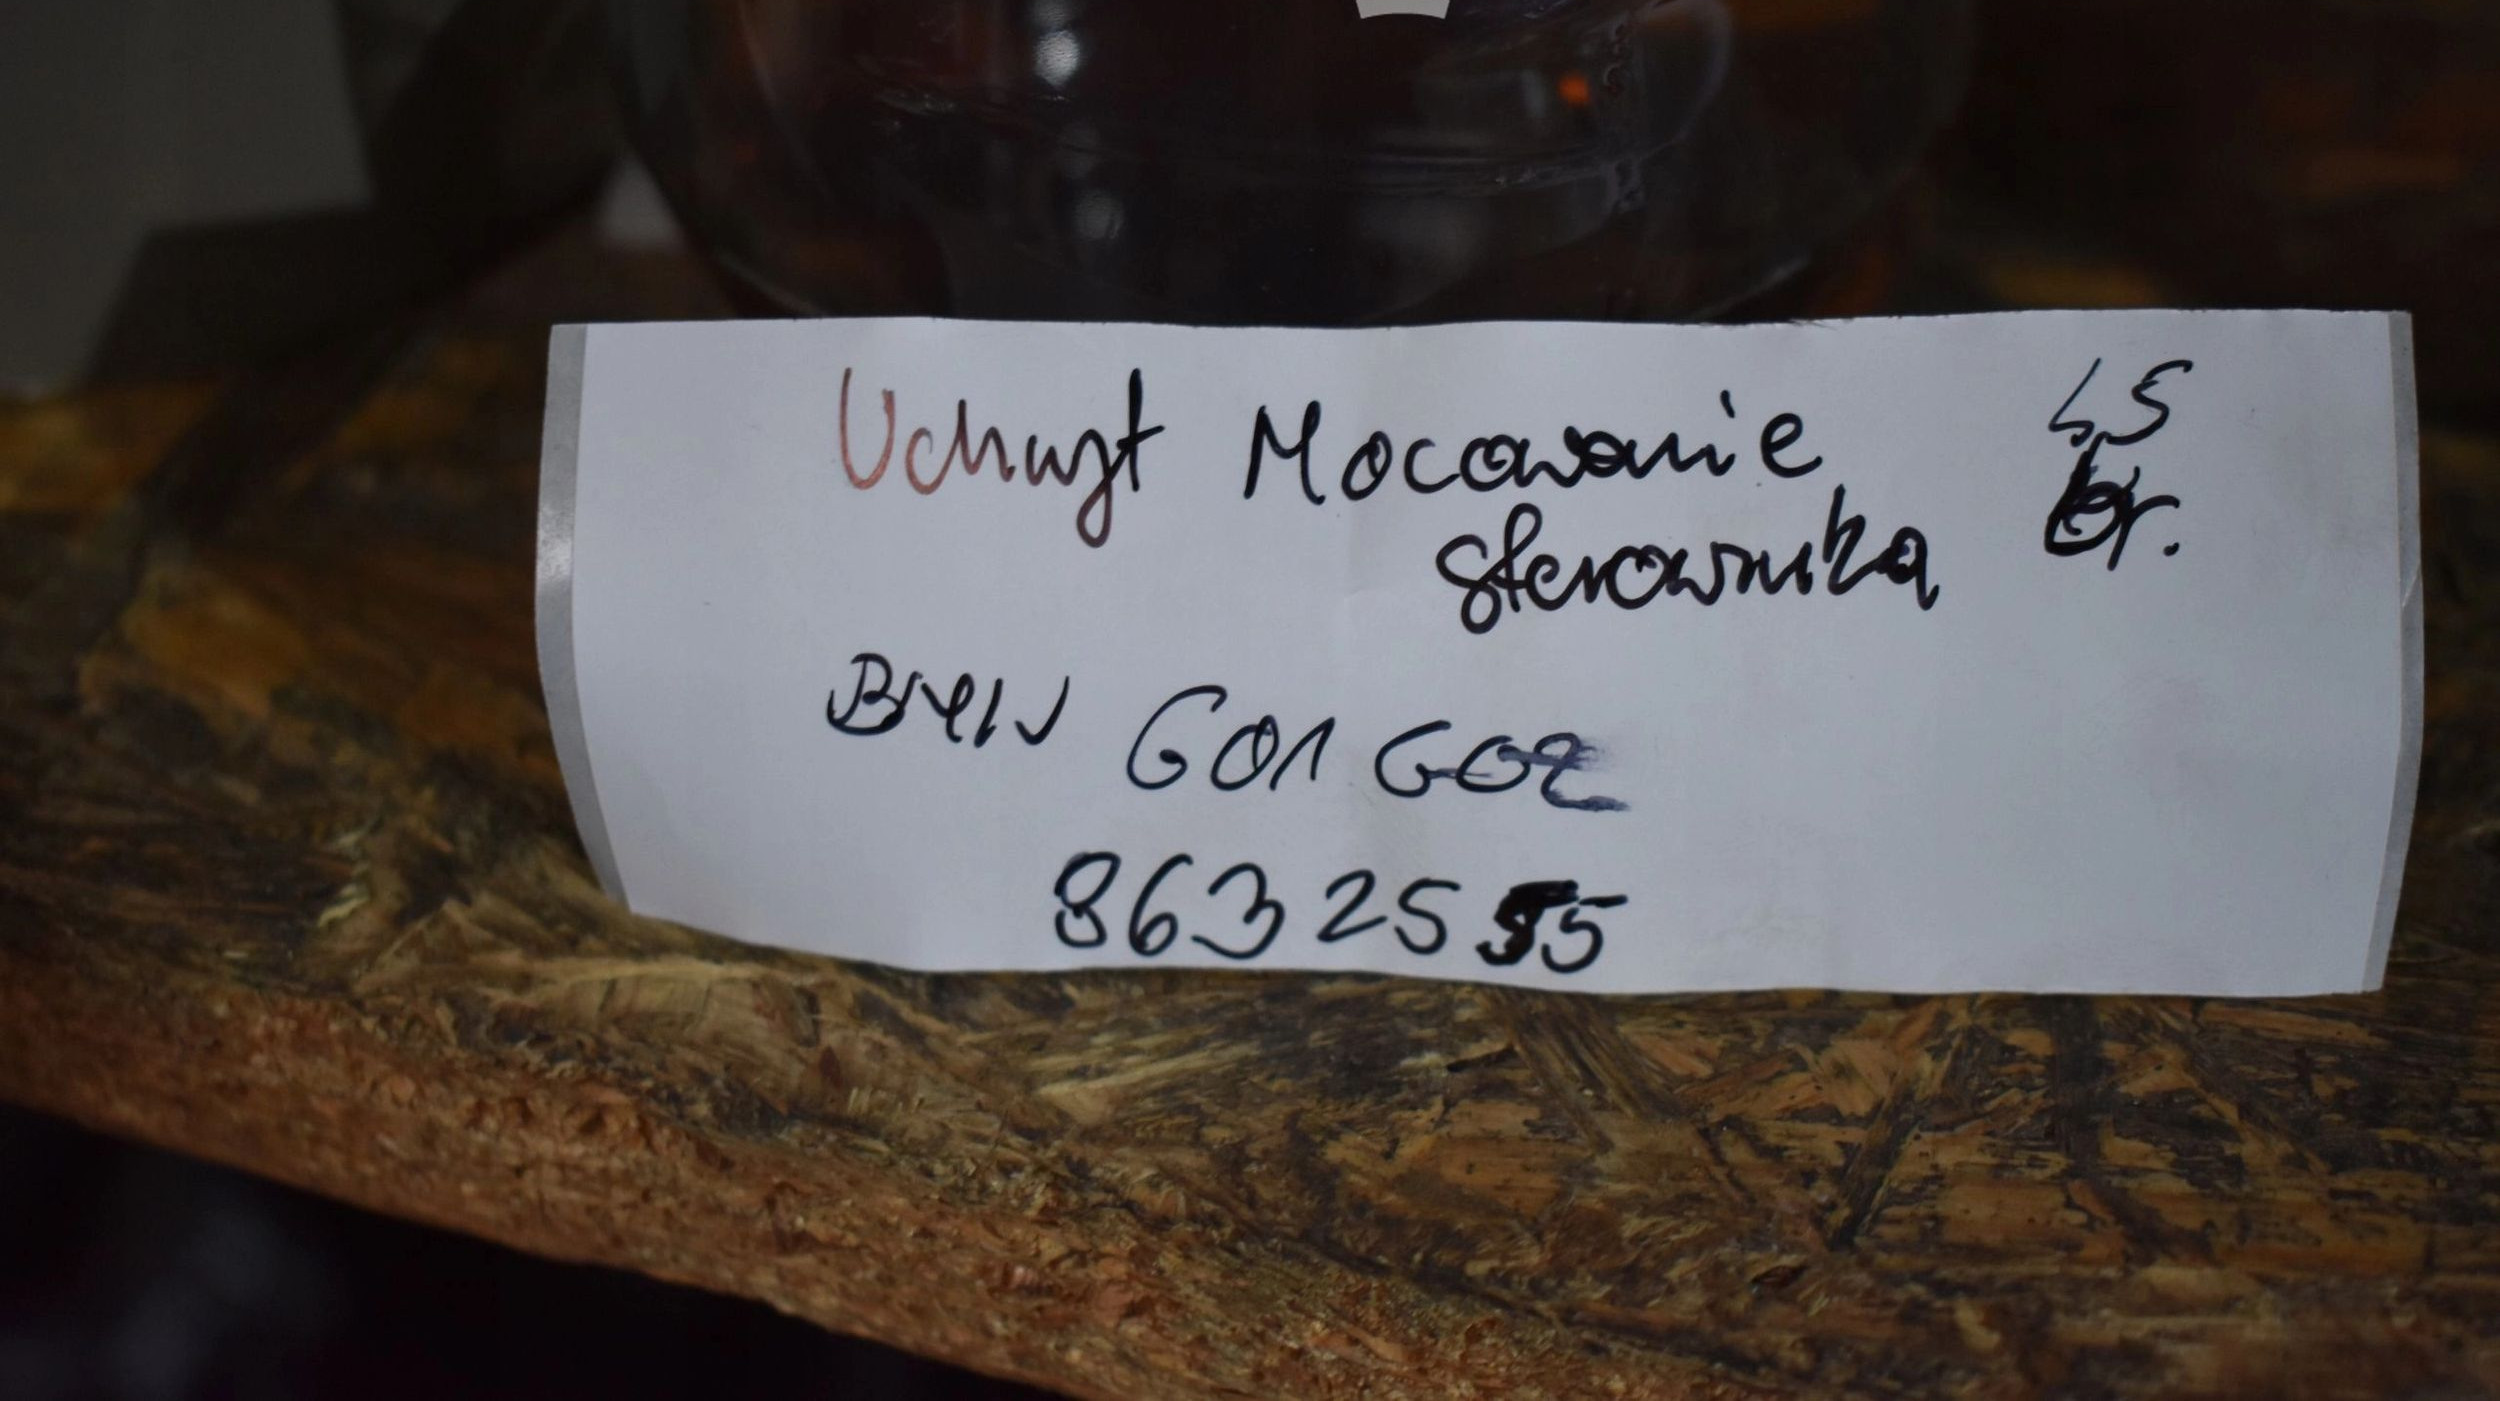 Uchwyt Mocowanie
sterownika
BMW G01 G02
8632555